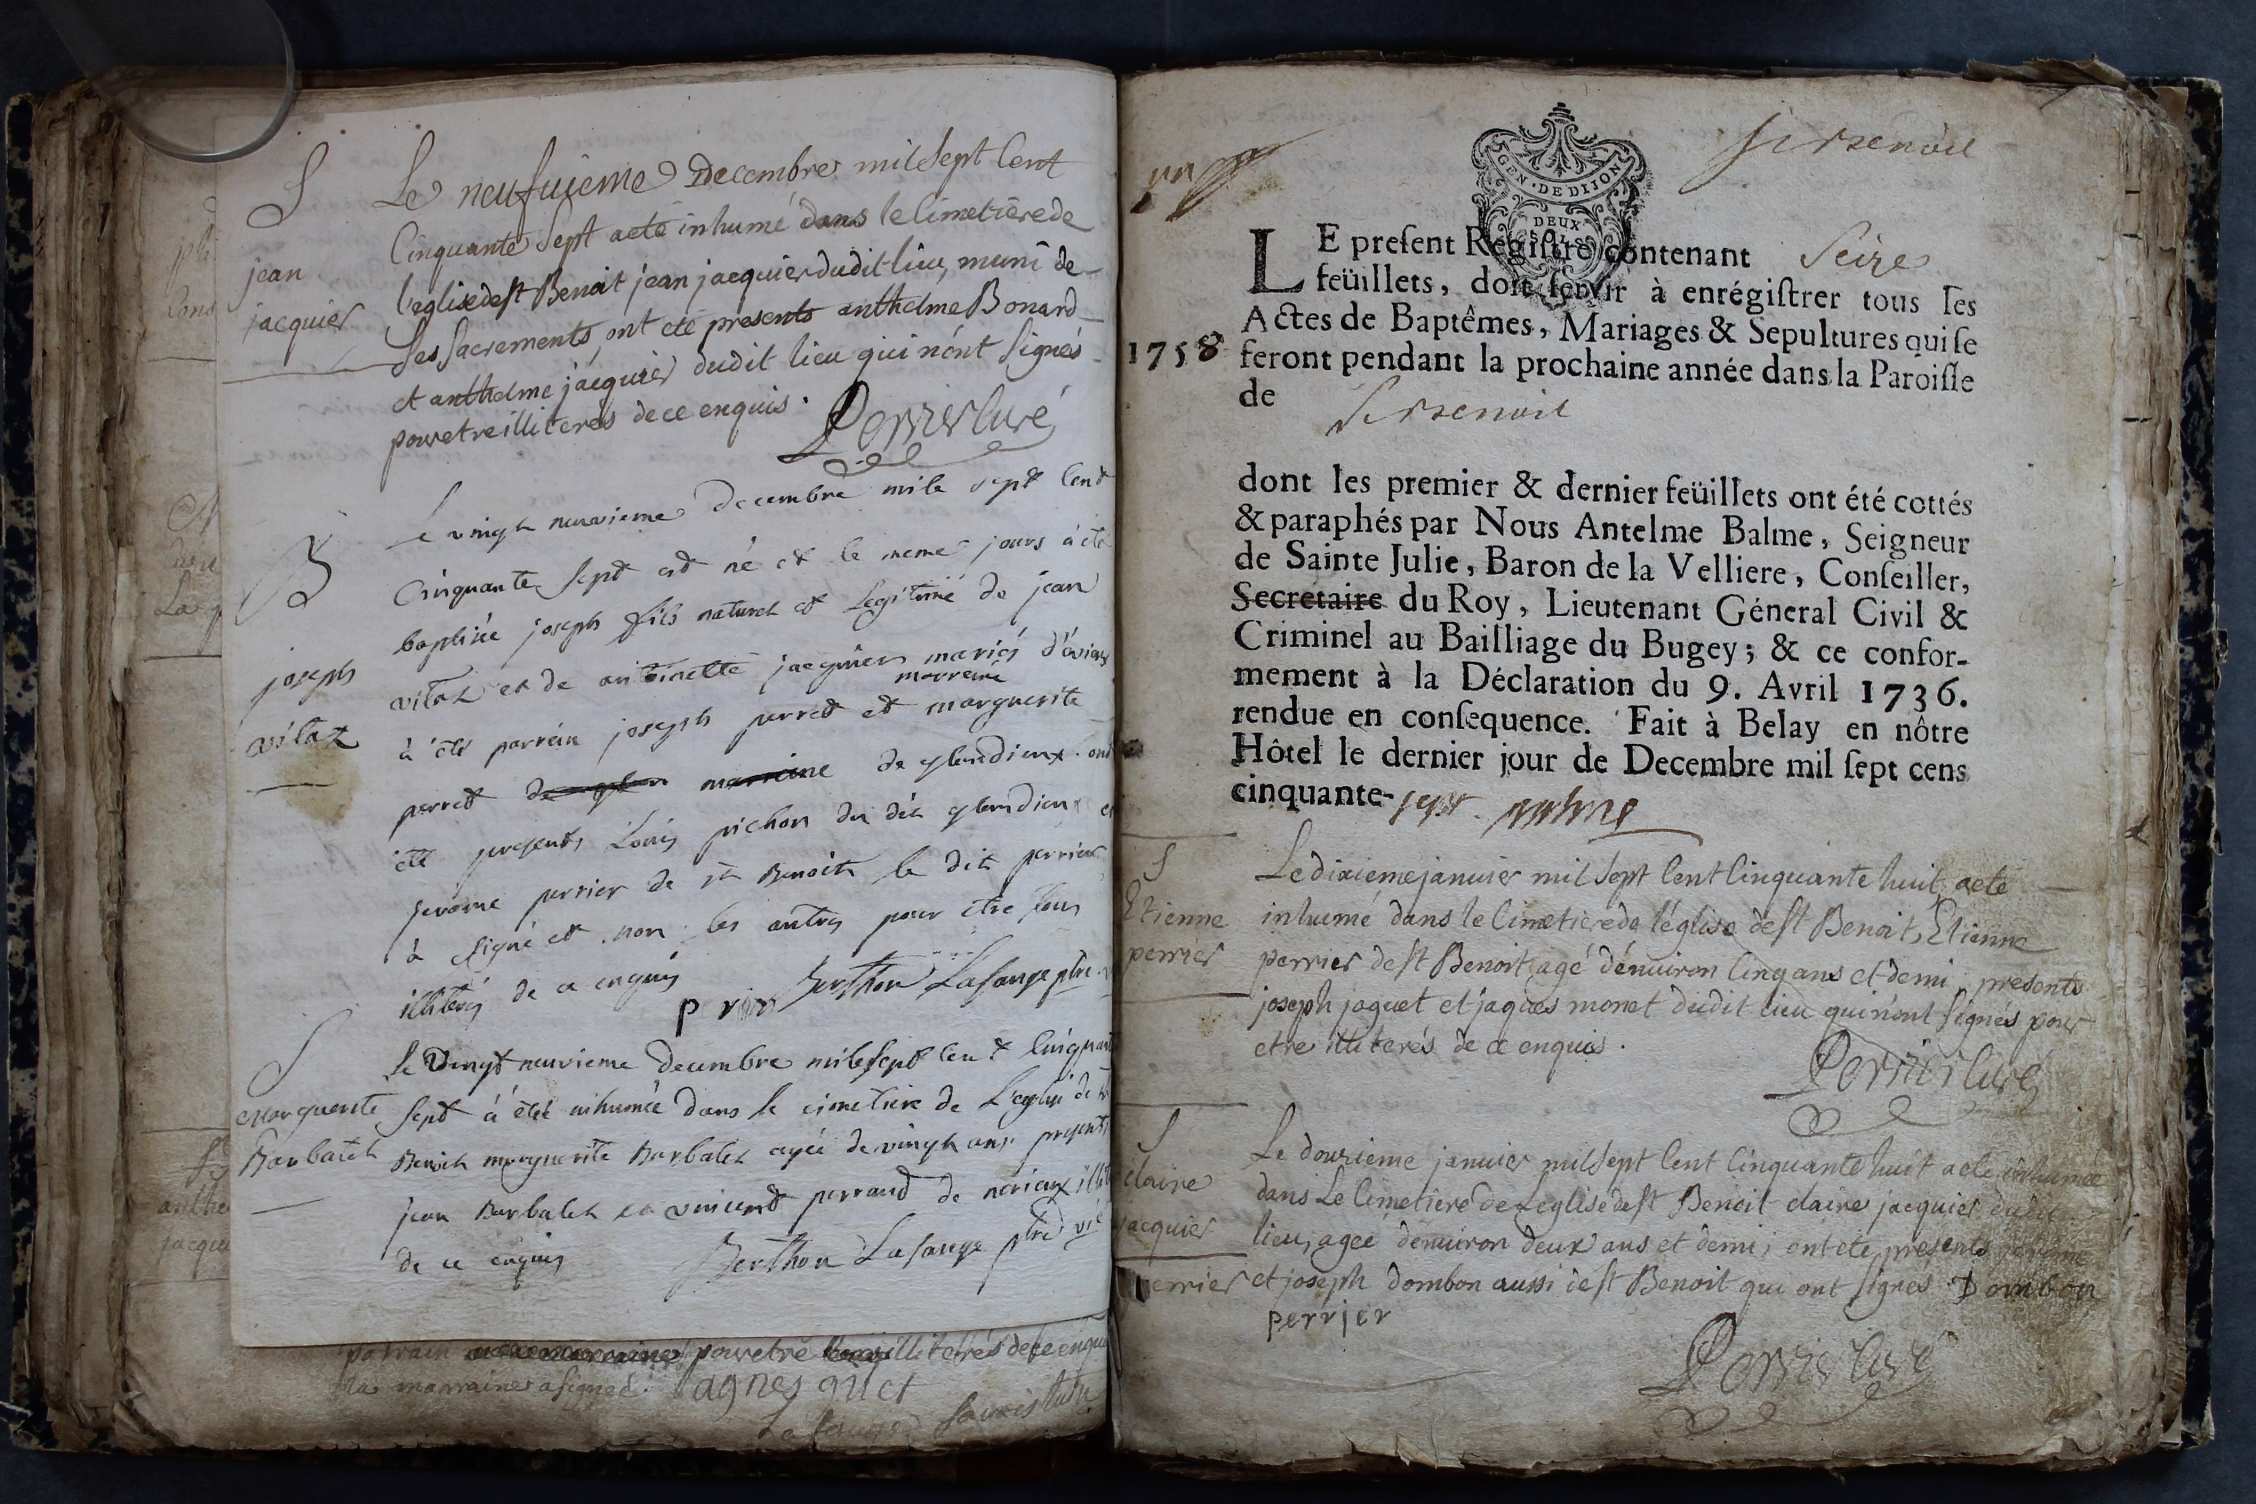 S
jean
jacquier
Le neufuieme Decembre mil sept Cent
Cinquante sept aeté inhumé dans le Cimetiere de
l'eglise de st Benoit jean jacquier dudit lieu, muni de
ses sacrements ont eté presents anthelme Bonard
et anthelme jacquier dudit lieu qui n'ont signés
pour etre illiterés de ce enquis.
Perrier Curé
B
joseph
vitaz
Le vingt neuvieme decembre mile sept Cent
Cinquante sept est né et le meme jours à été
baptisée joseph fils naturel et Legitime de jean
vitaz et de antoinette jacquier mariés
marreine
à été parrein joseph perret et marguerite
perret marreine de glandieux ont
été presents Louis pichon du dit glandieux et
jerome perrier de st Benoit le dit perrier
à signé et non les autres pour être tous
illiterés de ce enquis
perrier Berthon Lafange ptre
S
Marguerite
Barbalet
Le Vingt neuvieme decembre mile sept Cent Cinquante
sept à été inhumée dans le cimetiere de L'eglise de st
Benoit marguerite Barbalet agée de vingt ans presents
jean Barbalet et vincent perraud de
de ce enquis
Berthon Lafange ptre
parrain pour etre illiterés de ce enquis
la marraine a signé. agnes
DEUX
SOLS
GEN. DE DIJON
LE present Registre contenant Seize
feüillets, doit servir à enrégistrer tous les
Actes de Baptêmes, Mariages & Sepultures qui se
1758 feront pendant la prochaine année dans la Paroisse
de
dont les premier & dernier feüillets ont été cottés
& paraphés par Nous Antelme Balme, Seigneur
de Sainte Julie, Baron de la Velliere, Conseiller,
Secretaire du Roy, Lieutenant Géneral Civil &
Criminel au Bailliage du Bugey; & ce confor-
mement à la Déclaration du 9. Avril 1736.
rendue en consequence. Fait à Belay en nôtre
Hôtel le dernier jour de Decembre mil sept cens
cinquante-sept. Balme
S
Etienne
perrier
Le dixieme janvier mil sept Cent Cinquante huit, aeté
inhumé dans le Cimetiere de l'église de st Benoit, Etienne
perrier de st Benoit, agé d'environ Cinq ans et demi, presents
joseph jaquet et jaques monet dudit lieu qui n'ont signés pour
etre illiterés de ce enquis.
Perrier Curé
S
claire
jacquier
Le douzieme janvier mil sept Cent Cinquante huit aeté inhumée
dans Le Cimetiere de L'eglise de st Benoit claire jacquier dudit
lieu, agée d'environ deux ans et demi, ont eté presents jerome
perrier et joseph dombon aussi de st Benoit qui ont signés. Dombon
perrier
Perrier Curé